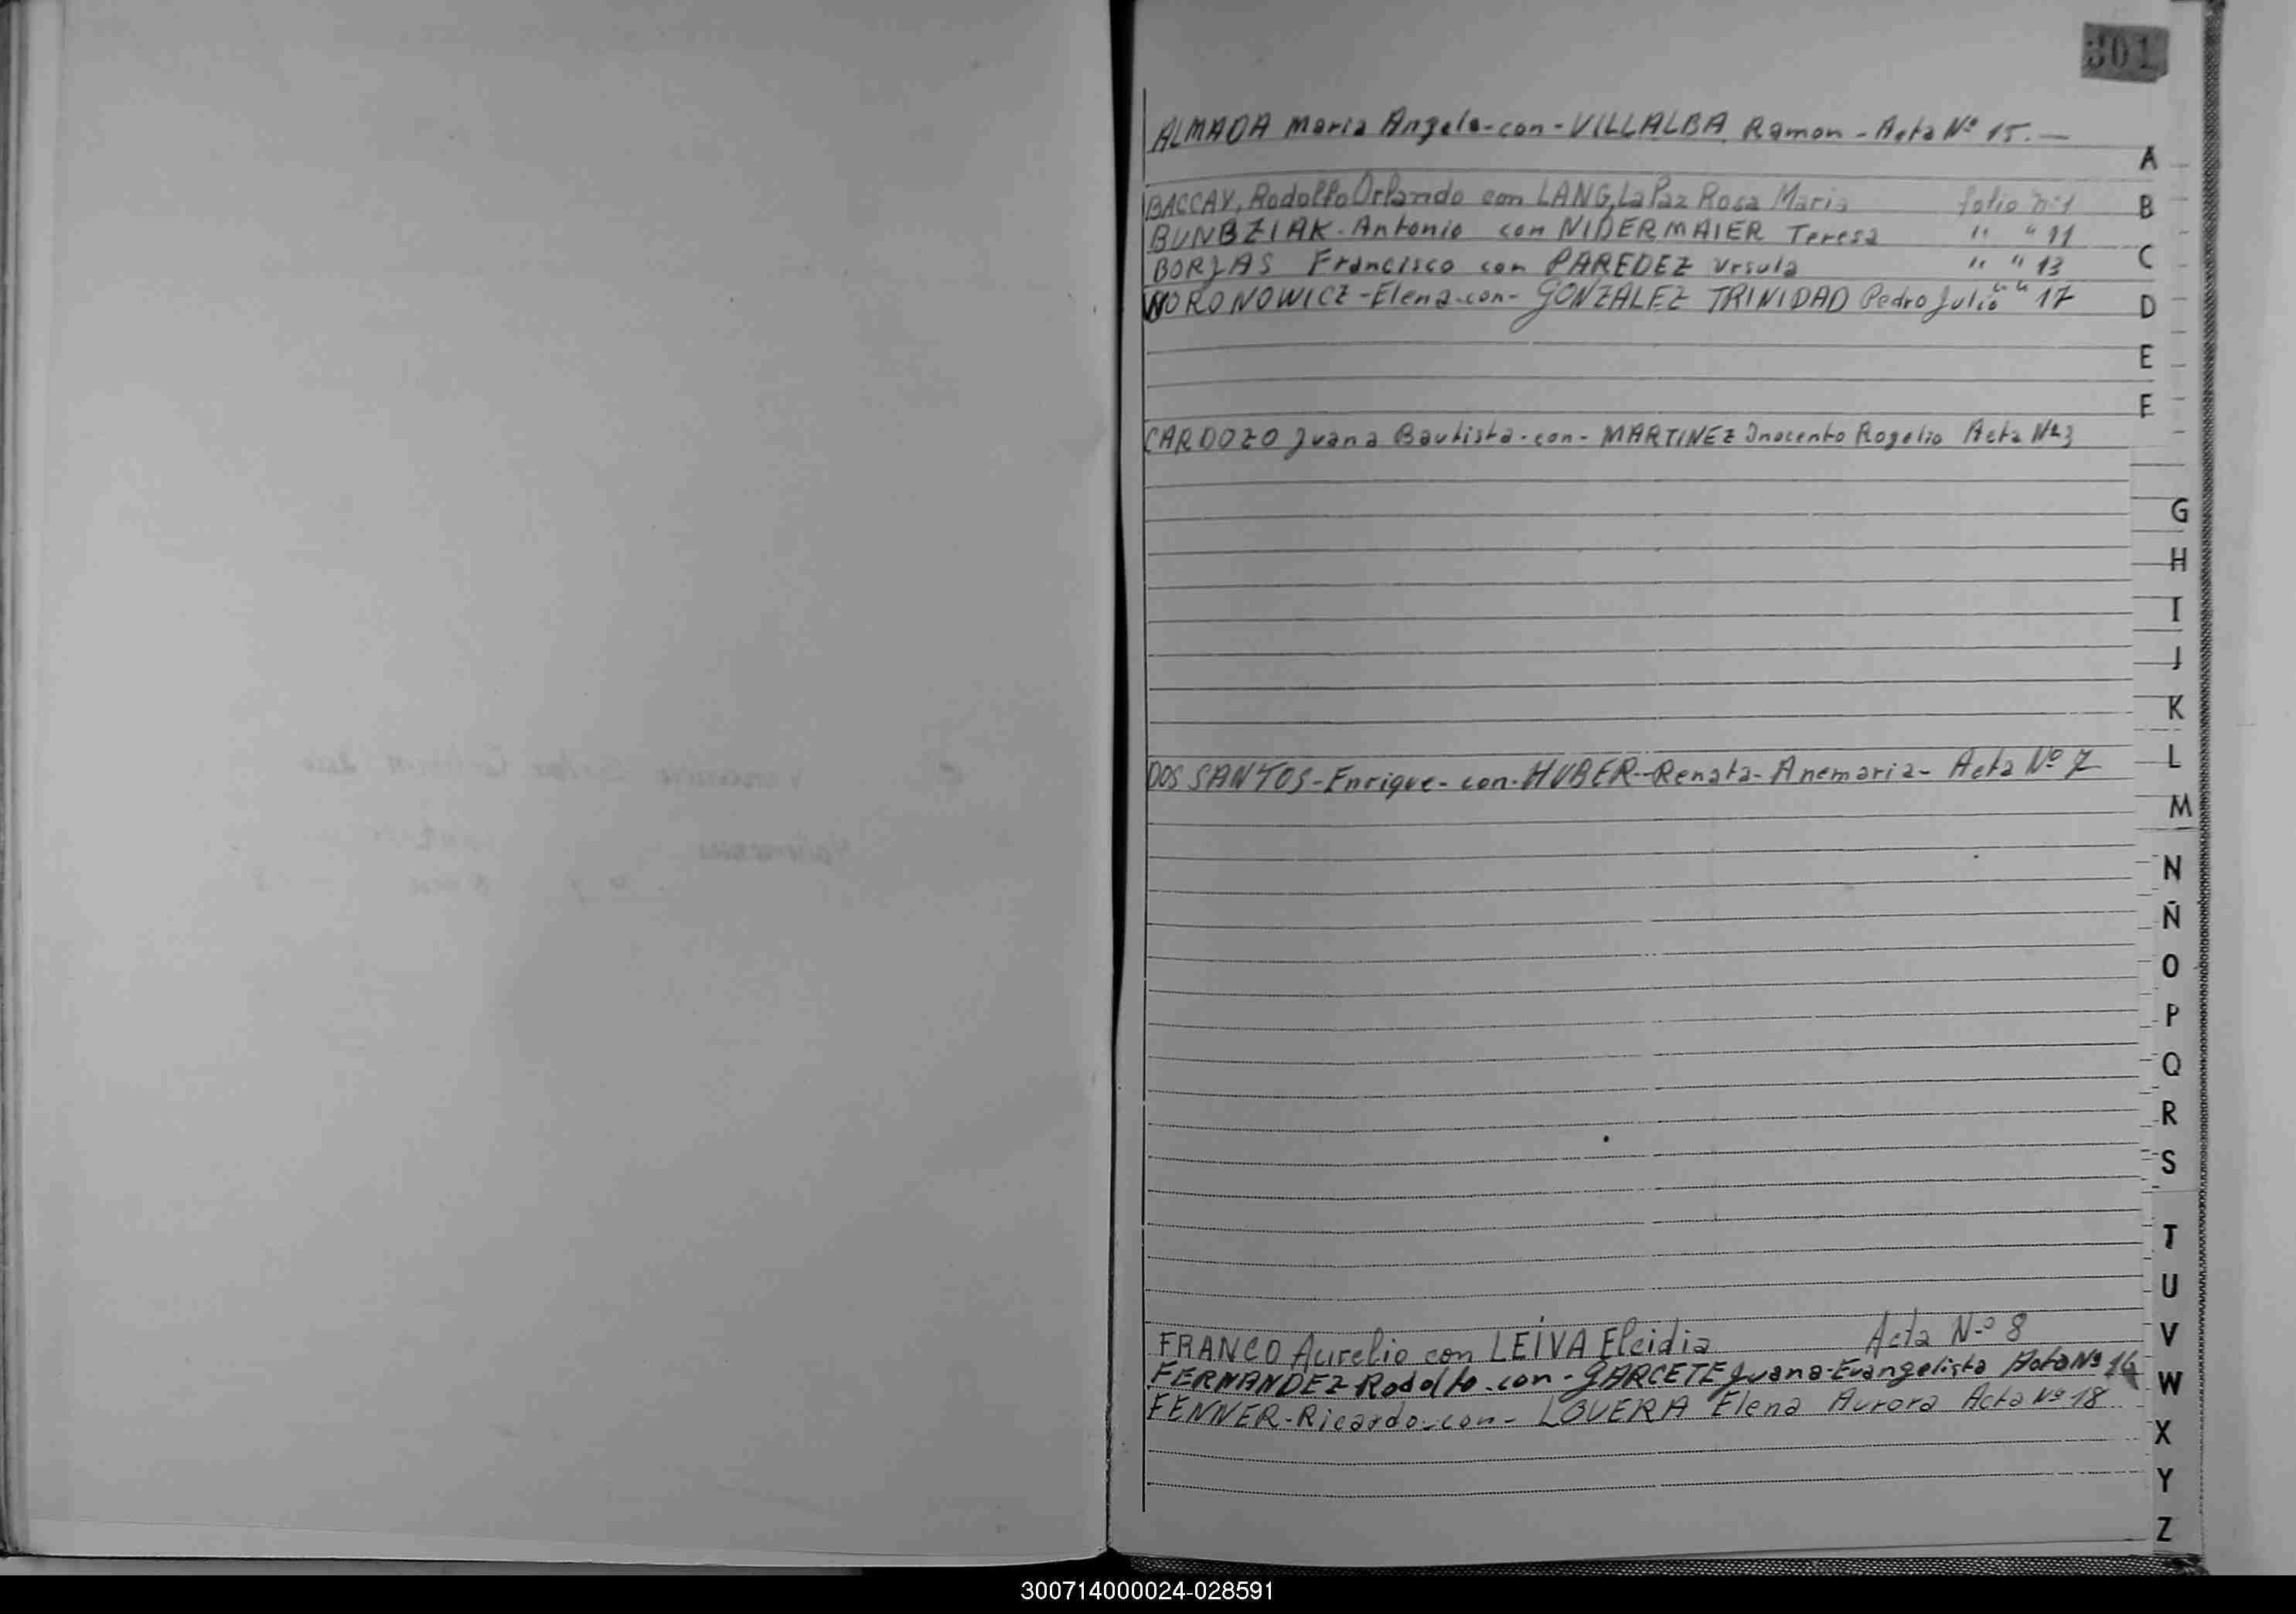 301
ALMADA Maria Angela-con-VILLALBA Ramon-Acta Nº 15.-
A
BACCAY, Rodolfo Orlando con LANG, La Paz Rosa Maria folio Nº 1
B
BUNBZIAK-Antonio con NIDERMAIER Teresa " " 11
BORJAS Francisco con PAREDEZ Ursula " " 13
C
WORONOWICZ-Elena-con-GONZALEZ TRINIDAD Pedro Julio " " 17
D
E
F
CARDOZO Juana Bautista-con-MARTINEZ Inocento Rogelio Acta Nº 3
G
H
I
J
K
L
DOS SANTOS-Enrique-con-HUBER-Renata-Anemaria-Acta Nº 7
M
N
Ñ
O
P
Q
R
S
T
U
V
FRANCO Aurelio con LEIVA Elcidia Acta Nº 8
FERNANDEZ Rodolfo-con-GARCETE Juana-Evangelista Acta Nº 14
W
FENNER-Ricardo-con-LOVERA Elena Aurora Acta Nº 18
X
Y
Z
300714000024-028591